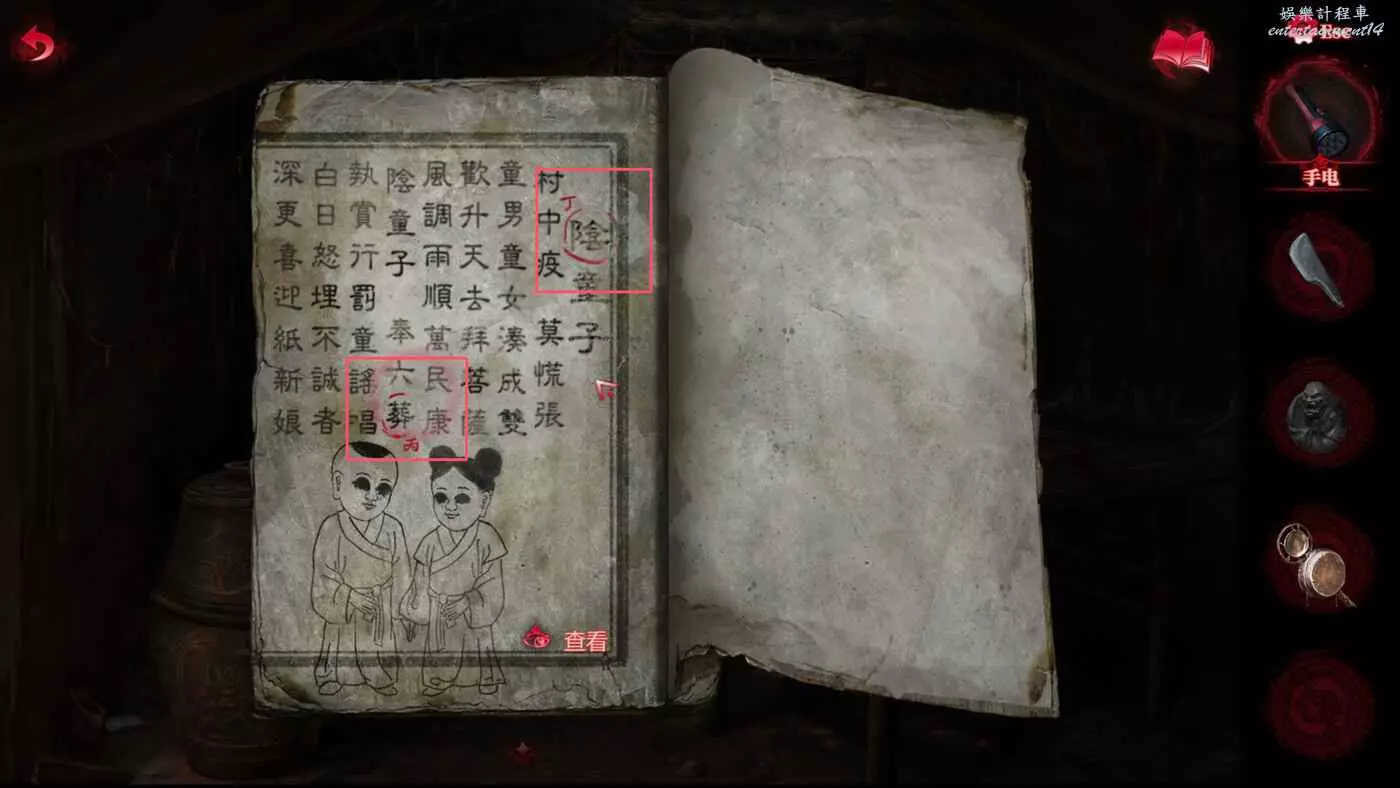 娛樂計程車
entertainment14
Esc
陰童子
丁
村中疫 莫慌張
童男童女湊成雙
歡升天去拜菩薩
風調雨順萬民康
陰童子 奉六葬
丙
執賞行罰童謠唱
白日怒埋不誠者
深更喜迎紙新娘
查看
手电